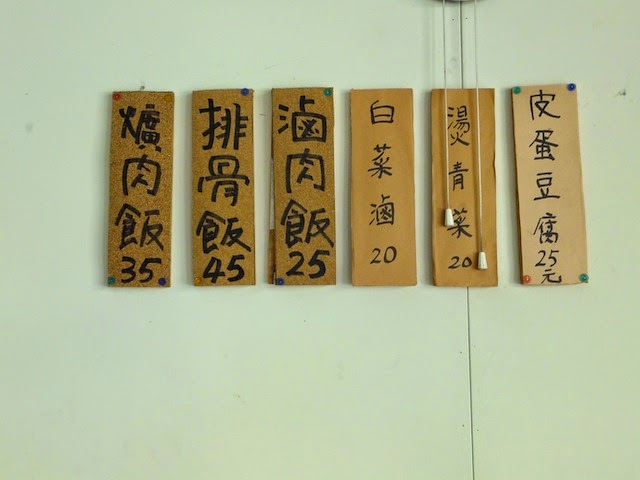 爌肉飯35
排骨飯45
滷肉飯25
白菜滷20
燙青菜20
皮蛋豆腐25元